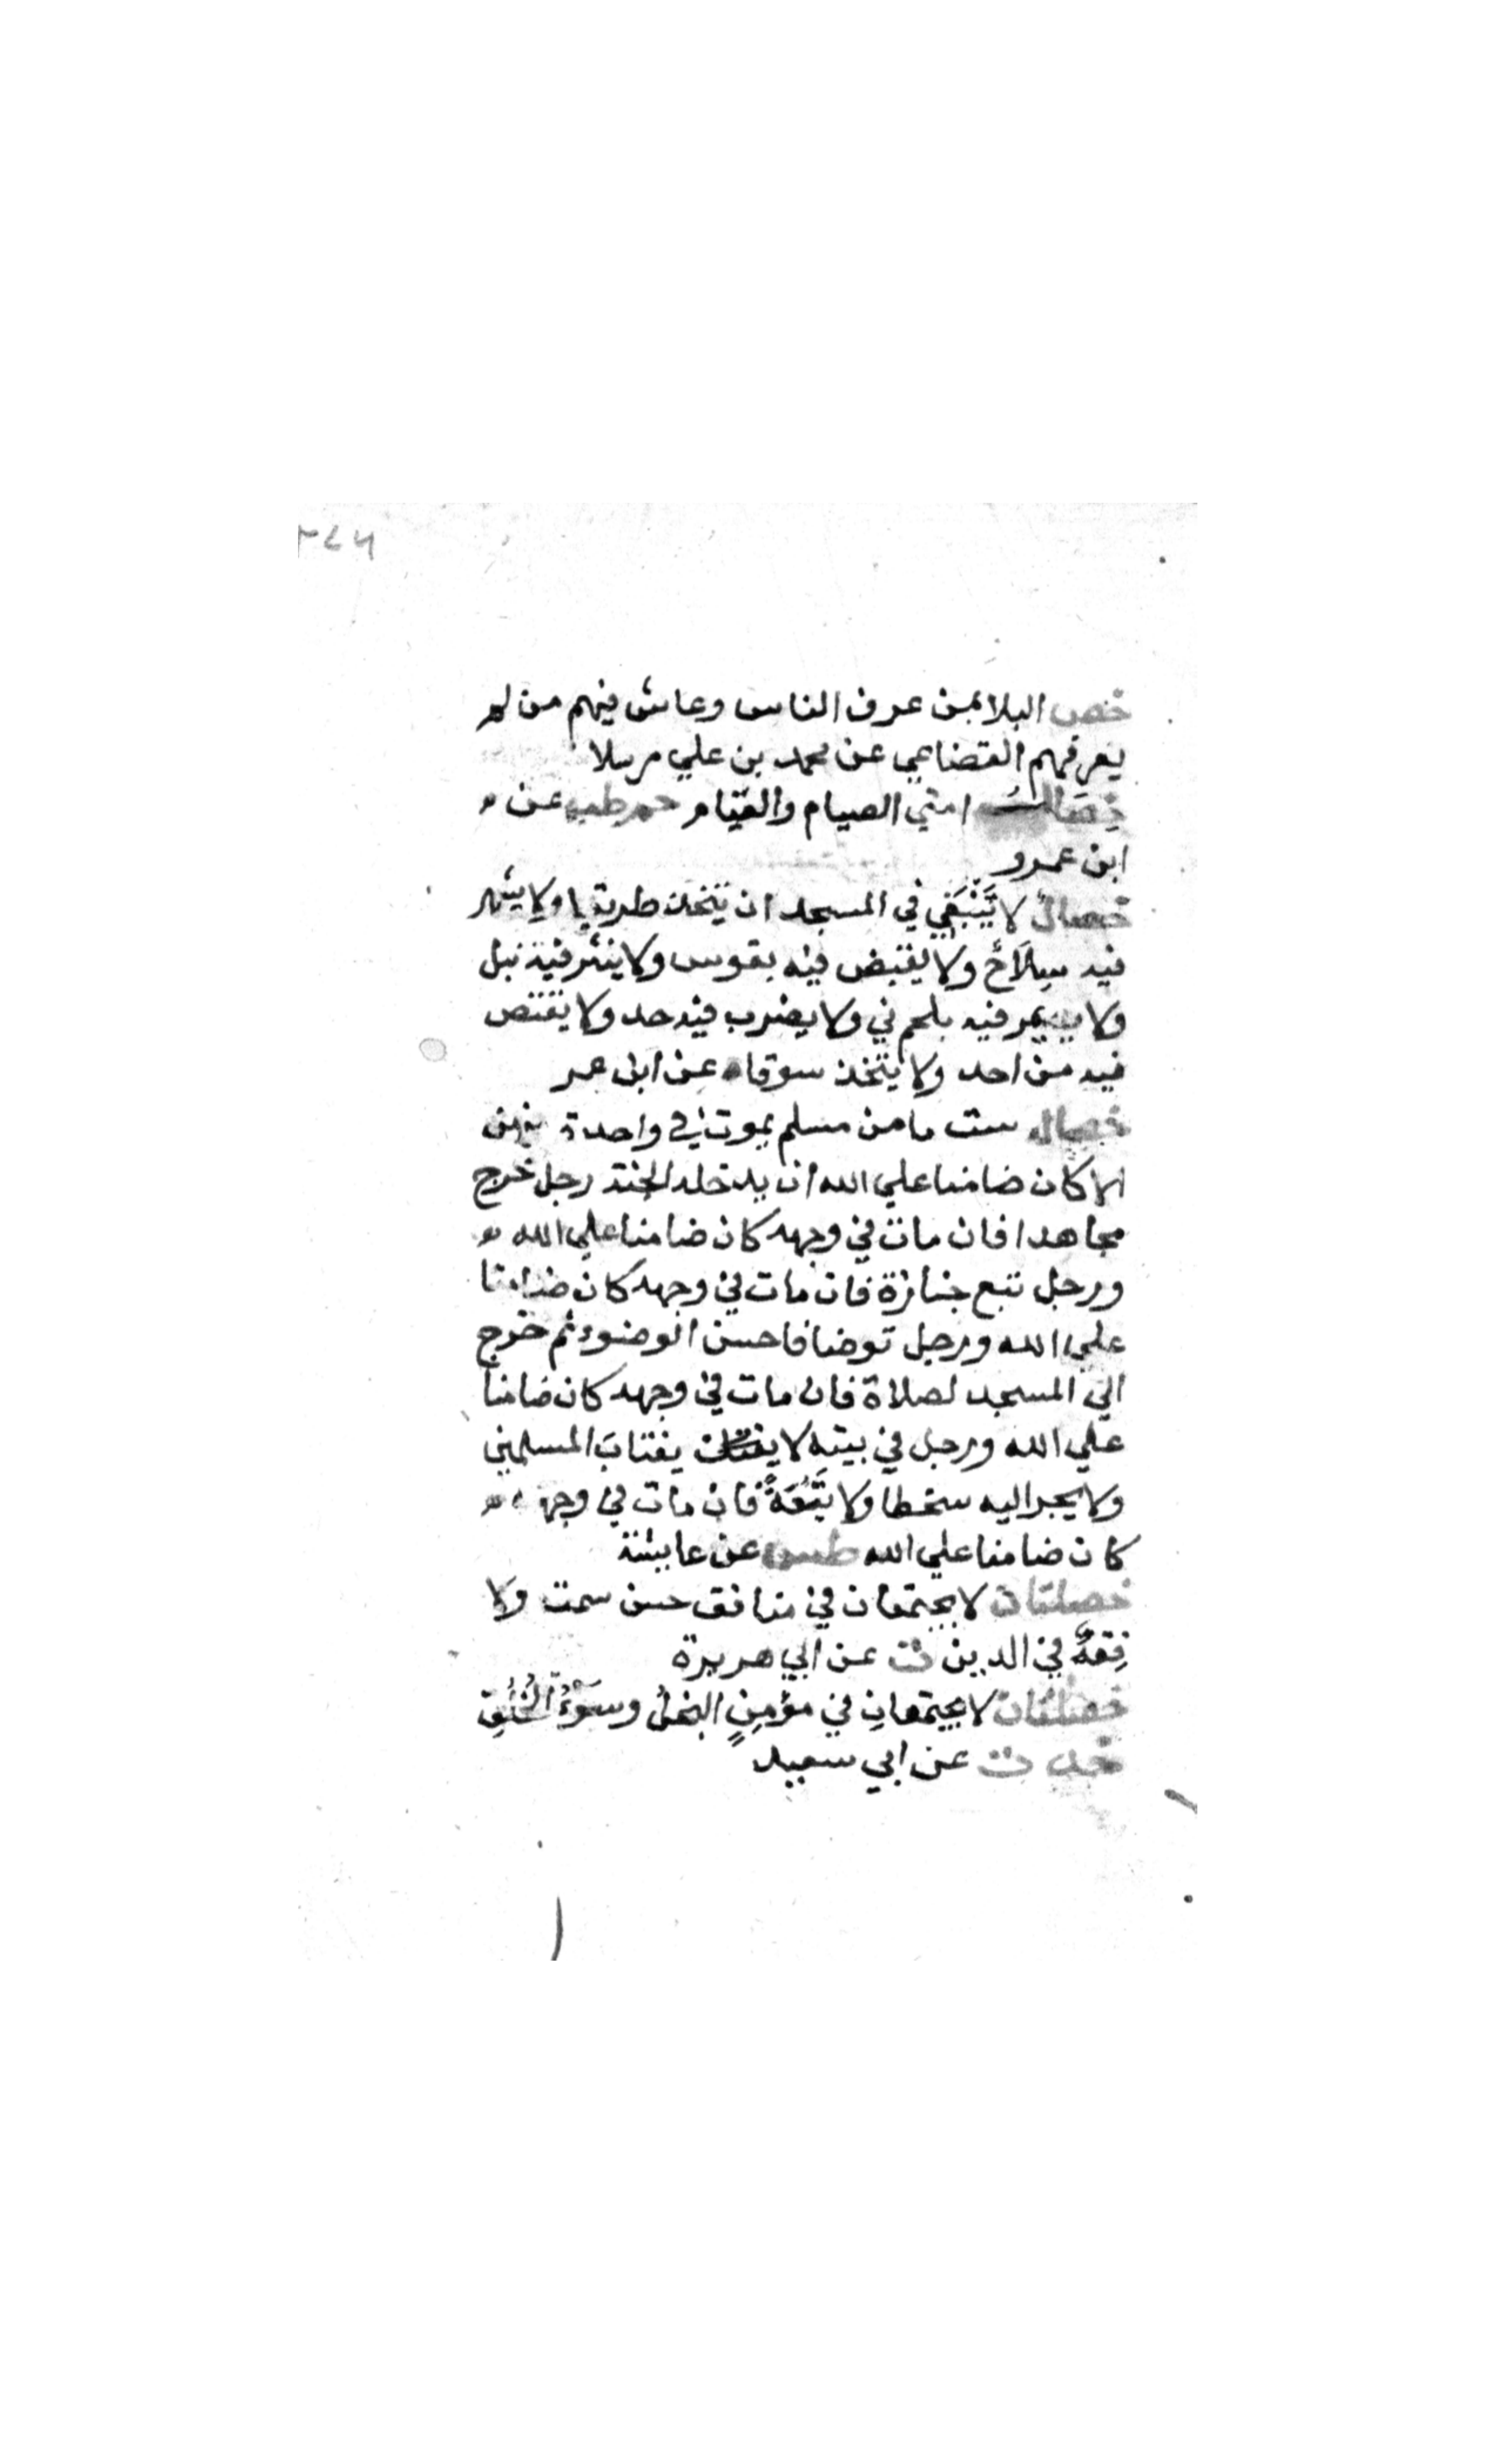 خص البلا بمن عرف الناس وعاش فيهم من لم
يعرفهم القضاعي عن محمد بن علي مرسلا
امتي الصيام والقيام حم طب عن
ابن عمرو
خصال لا يَنْبَغي في المسجد ان يتخذ طريقا ولا يشهر
فيه سِلَاحٌ ولا يقبض فيه بقوس ولا ينثر فيه نبل
ولا يمر فيه بلحم ني ولا يضرب فيه حد ولا يقتص
فيه من احد ولا يتخذ سوقا ه عن ابن عمر
خصال ست ما من مسلم يموت في واحدة منهن
الا كان ضامنا علي الله ان يدخله الجنة رجل خرج
مجاهدا فان مات في وجهه كان ضامنا علي الله
ورجل تبع جنازة فان مات في وجهه كان ضامنا
علي الله ورجل توضا فاحسن الوضوء ثم خرج
الي المسجد لصلاة فان مات في وجهه كان ضامنا
علي الله ورجل في بيته لا يغتاب المسلمين
ولا يجر اليه سخطا ولا فان مات في وجهه
كان ضامنا علي الله طس عن عايشة
خصلتان لا يجتمعان في منافق حسن سمت ولا
فِقهٌ في الدين ت عن ابي هريرة
خصلتان لا يجتمعانِ في مؤمنٍ البخلُ وسوءُ الخُلُقِ
خد ت عن ابي سعيد